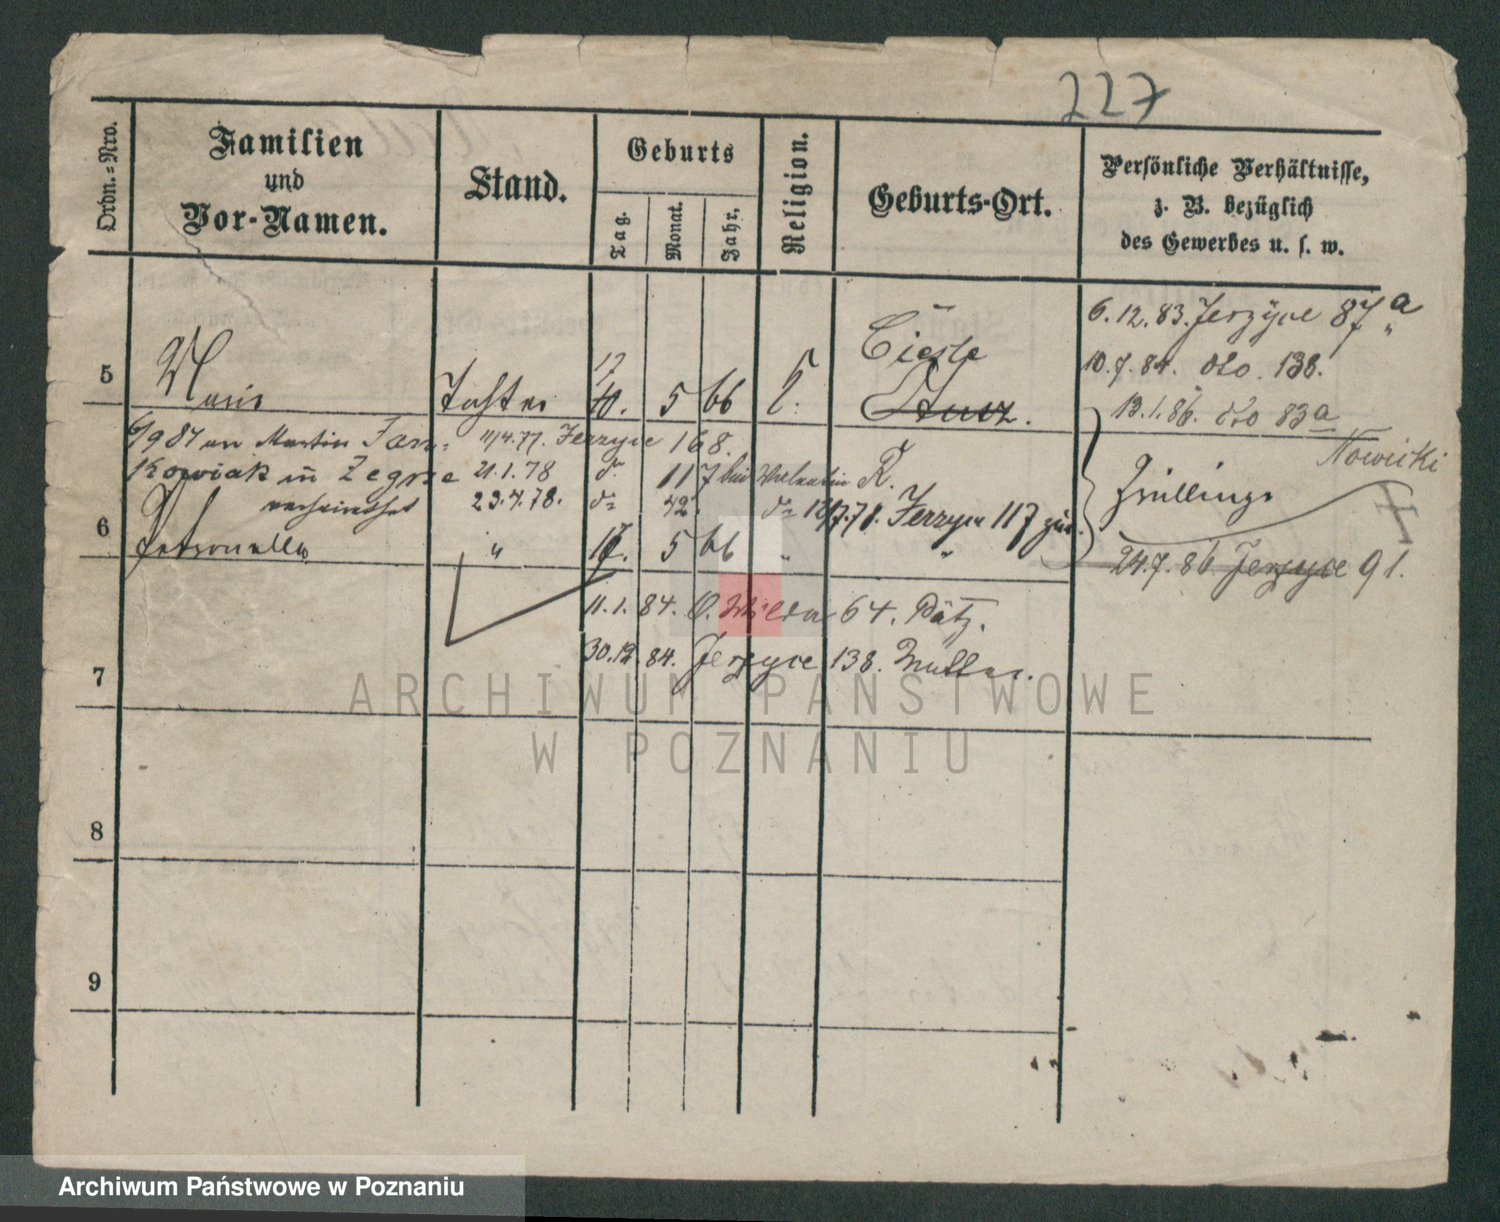 227
Ordn.-Nro.
Familien
und
Vor-Namen.
Stand.
Geburts
Tag.
Monat.
Jahr.
Religion.
Geburts-Ort.
Persönliche Verhältnisse,
z. B. bezüglich
des Gewerbes u. s. w.
6.12.83. Jerzyce 87a
Cieśle
10.7.84. dto. 138.
17
5 Marie Tochter 5 66 k.
13.1.86. dto 83a
6/9 87 an Martin Tom- 11/4.77. Jerzyce 168.
Nowicki
kowiak in Zegrze 21.1.78 do 117 bei Valentin R.
Zwillinge
verheirathet 23.7.78. do 42. Jerzyce 117
6 Petronella " 17. 5 66 " "
24.7.86. Jerzyce 91.
11.1.84. O. Wilda 64. Pätz.
30.12.84. Jerzyce 138. Müller.
7
8
9
ARCHIWUM PAŃSTWOWE
W POZNANIU
Archiwum Państwowe w Poznaniu